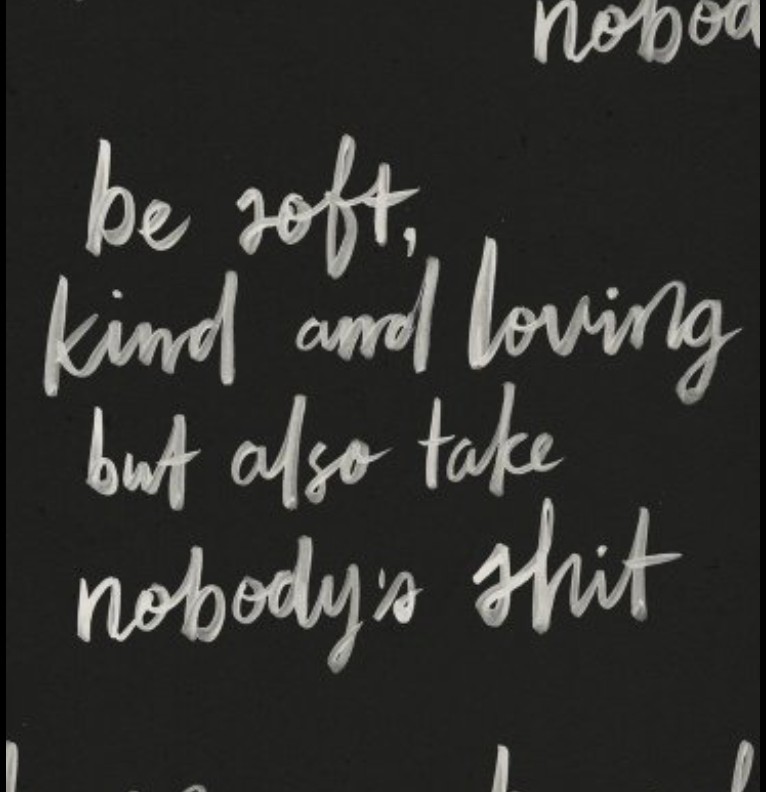 be soft,
kind and loving
but also take
nobody's shit